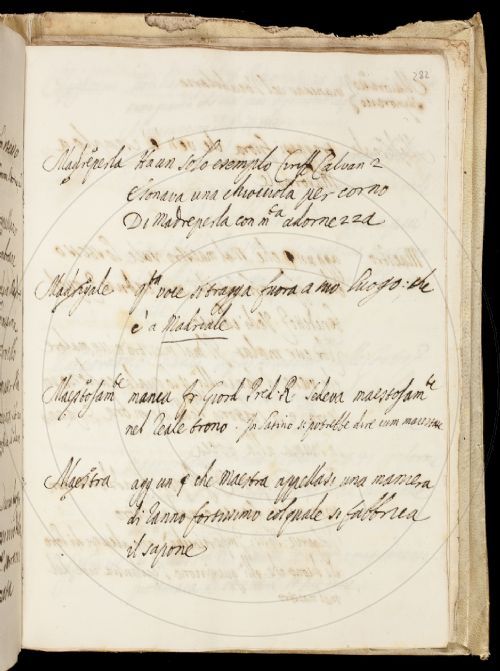 282
Madreperla Ha un solo esempio Ciriff Calvan 2
E sonava una chiocciola per corno
Di Madreperla con m.ca adornezza
Madrigale q.ta voce si trappa fuora a suo luogo; che
è a Madriale
Maestosam.te manca Fr Giord Pred. R. Sedeva maestosam.te
nel Reale trono. In Latino si potrebbe dire cum maiestate
Maestra agg un § che Maestra appellasi una maniera
di ranno fortissimo col quale si fabbrica
il sapone